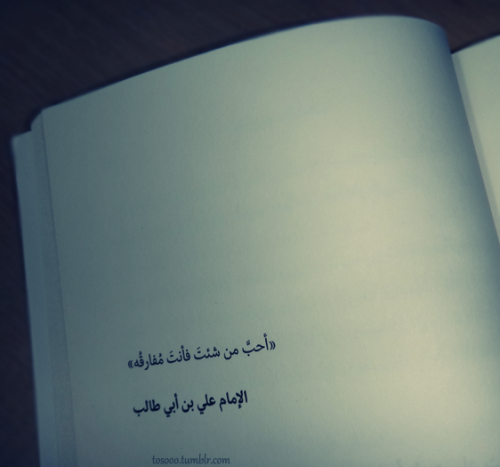 «أحبَّ من شئتَ فأنتَ مُفارقُه»
الإمام علي بن أبي طالب
tosooo.tumblr.com